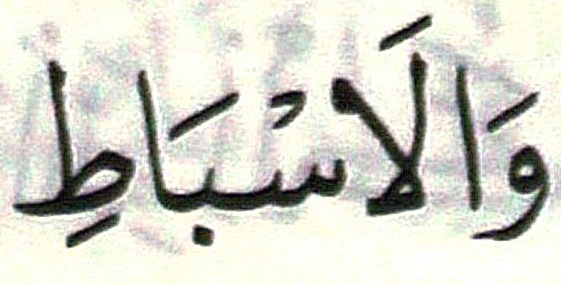 وَالَاسْبَاطِ